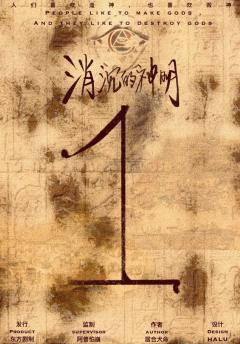 人们喜欢造神,也喜欢毁神
PEOPLE LIKE TO MAKE GODS
AND THEY LIKE TO DESTROY GODS
消沉的神明
1
发行 监制 作者 设计
PRODUCT SUPERVISOR AUTHOR DESIGN
东方剧制 阿普怕崩 HALU